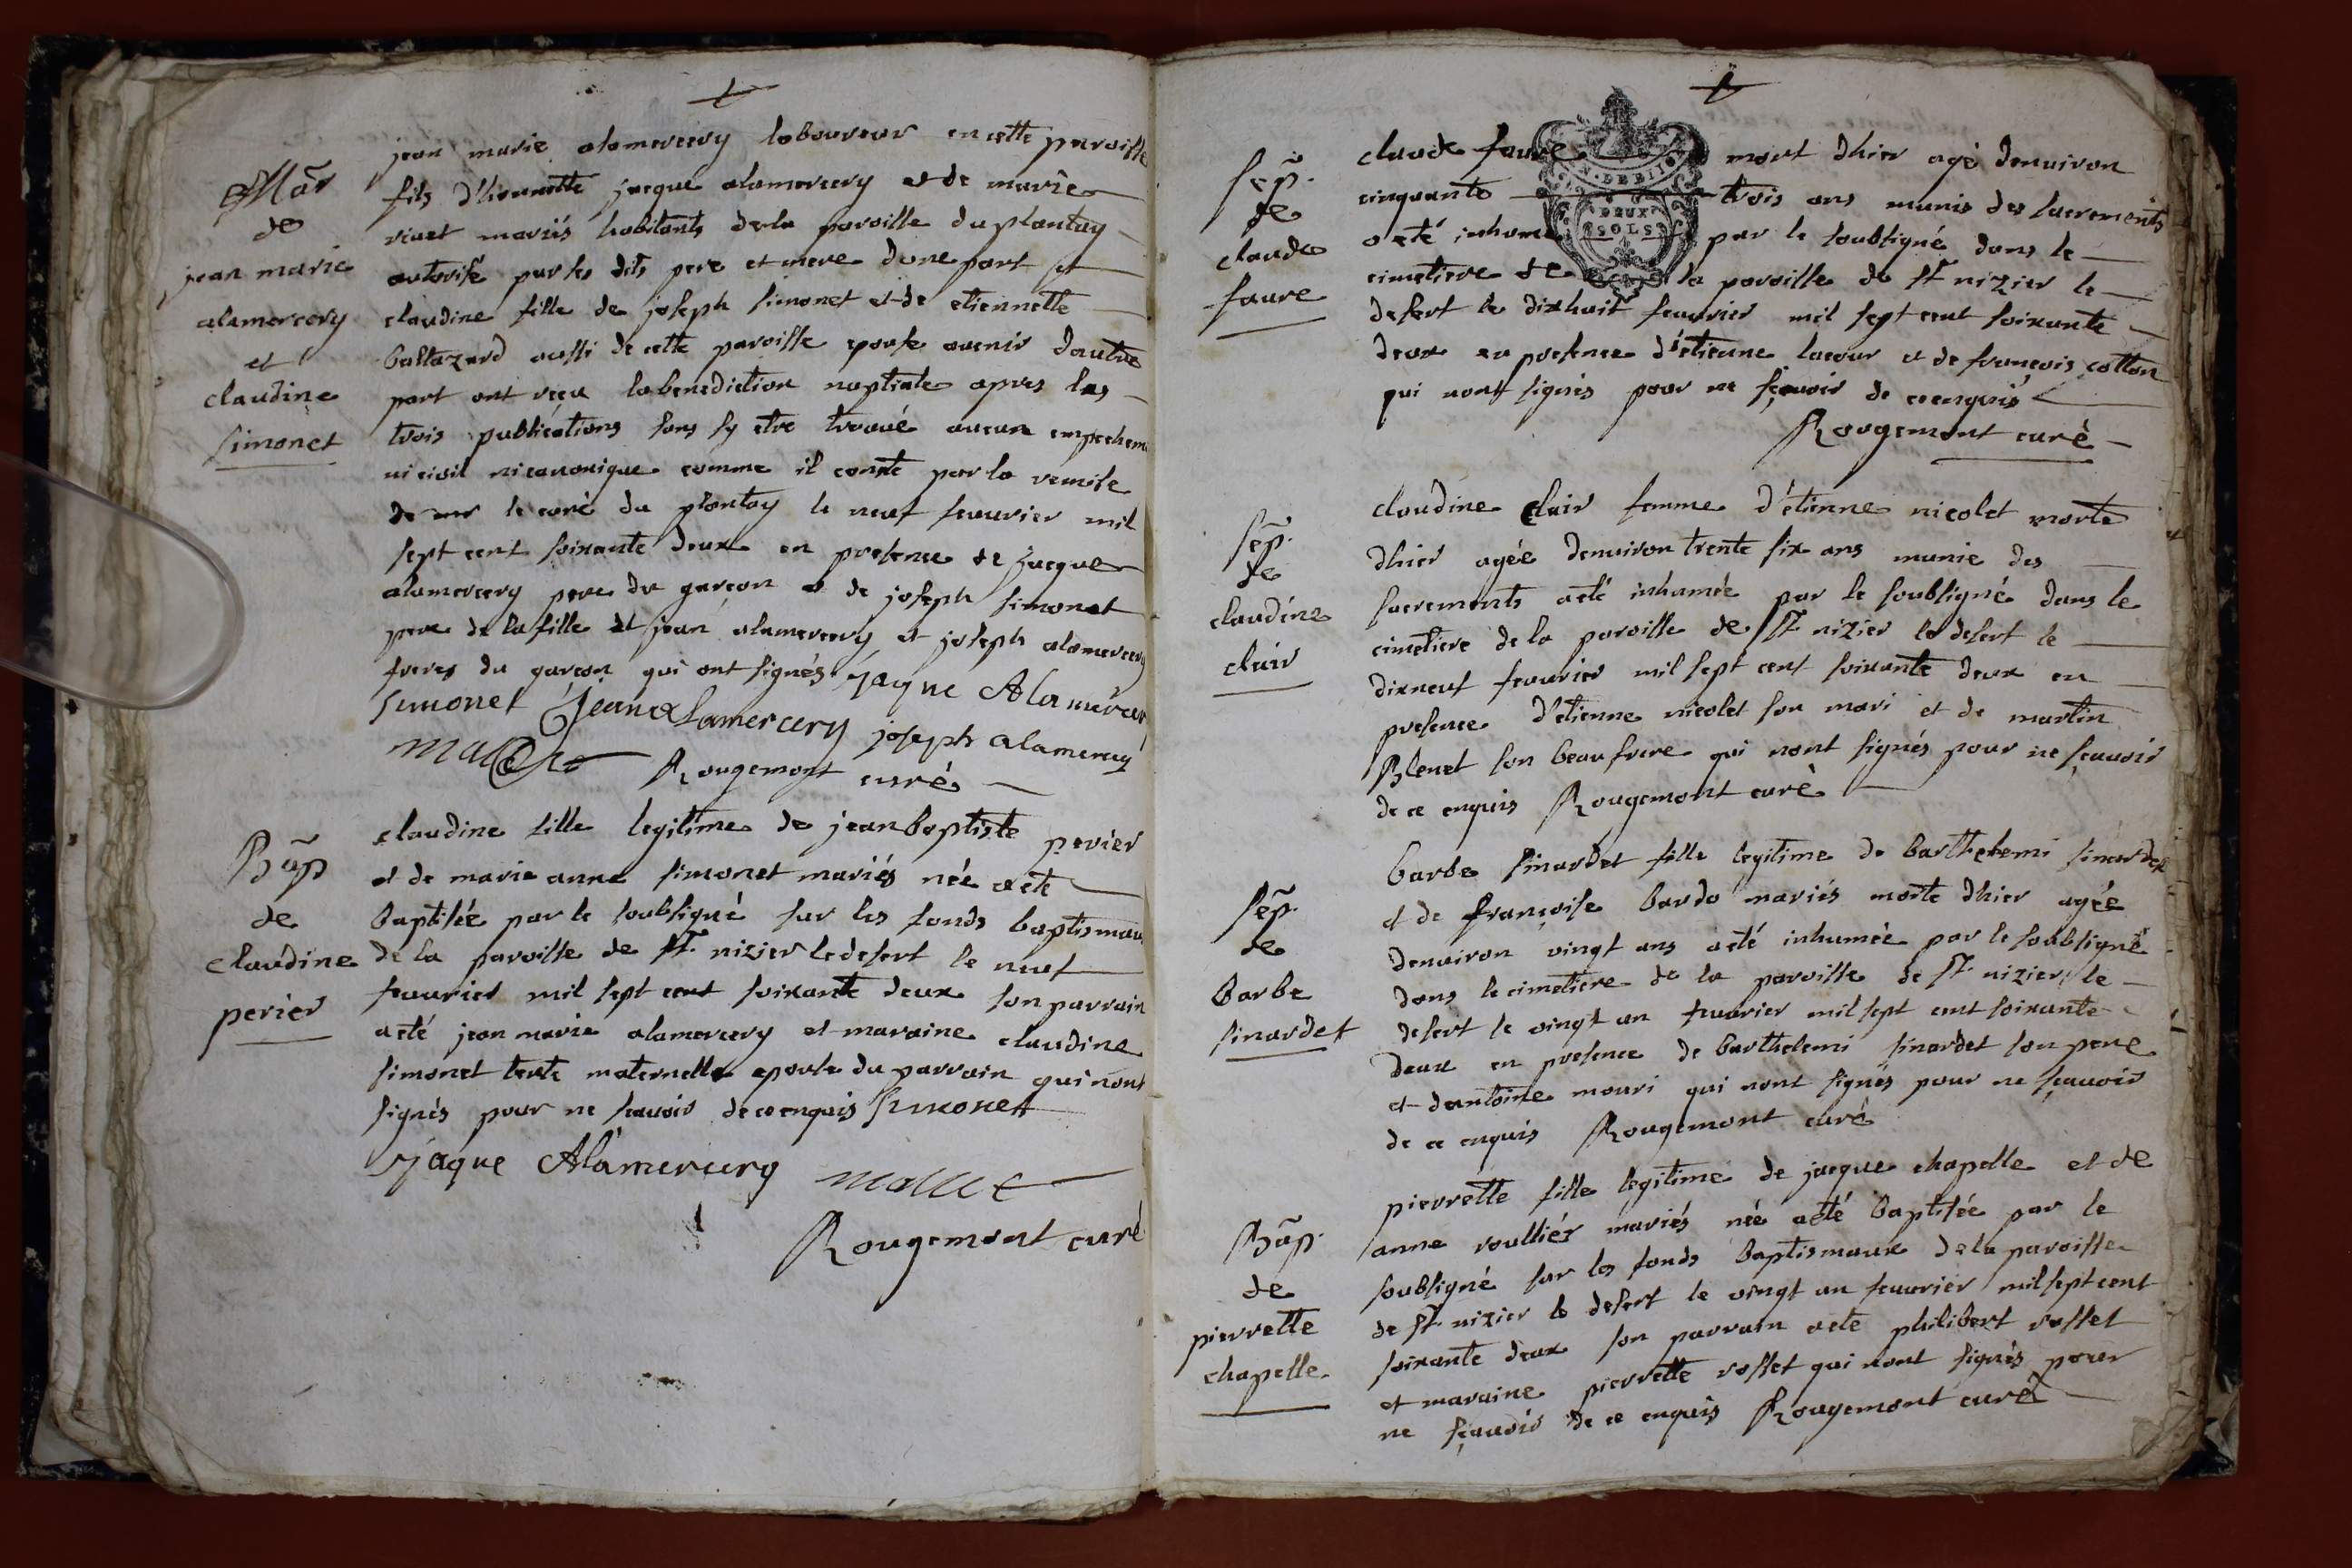 Mār
de
jean marie
alamercery
et
claudine
simonet
jean marie alamercery laboureur en cette paroisse
fils d'honnette jacque alamercery et de marie
vivet mariés habitants de la paroisse du plantay
autorisé par ses dits pere et mere d'une part et
claudine fille de joseph simonet et de etiennette
baltazard aussi de cette paroisse epouse avenir d'autre
part ont reçu la benediction nuptiale apres les
trois publications sans sy etre trouvé aucun empechem
ni civil ni canonique comme il conste par la remise
de mr le curé du plantay le neuf feuvrier mil
sept cent soixante deux en presence de jacque
alamercery pere du garçon et de joseph simonet
pere de la fille et jean alamercery et joseph alamercery
freres du garçon qui ont signés jaque Alamercery
simonet jean alamercery joseph alamercery
Rougemont curé
Bāp
de
claudine
perier
claudine fille legitime de jean baptiste perier
et de marie anne simonet mariés née aeté
baptisée par le soubsigné sur les fonds baptismaux
de la paroisse de St nizier le desert le neuf
feuvrier mil sept cent soixante deux son parrain
aeté jean marie alamercery et maraine claudine
simonet tente maternelle epouse du parrain qui nont
signés pour ne scavoir de ce enquis simonet
jaque Alamercery mallet
Rougemont curé
Sēp.
de
claude
faure
claude faure mort dhier agé denuiron
DEUX
SOLS
cinquante trois ans munis des sacrements
a eté inhumé par le soubsigné dans le
cimetiere de la paroisse de St nizier le
desert le dixhuit feuvrier mil sept cent soixante
deux en presence d'etienne lacour et de francois cotton
qui nont signés pour ne sçavoir de ce enquis
Rougemont curé
Sēp.
de
claudine
clair
claudine clair femme d'étienne nicolet morte
dhier agée denuiron trente six ans munie des
sacrements aeté inhumée par le soubsigné dans le
cimetiere de la paroisse de St nizier le desert le
dixneuf feuvrier mil sept cent soixante deux en
presence d'etienne nicolet son mari et de martin
Blenet son beaufrere qui nont signés pour ne sçavoir
de ce enquis Rougemont curé
Sēp.
de
barbe
sinardet
barbe sinardet fille legitime de barthelemi sinardet
et de françoise bardo mariés morte dhier agée
denuiron vingt ans aeté inhumée par le soubsigné
dans le cimetiere de la paroisse de St nizier le
desert le vingt un feuvrier mil sept cent soixante
deux en presence de barthelemi sinardet son pere
et dantoine mouri qui nont signés pour ne sçavoir
de ce enquis Rougemont curé
Bāp.
de
pierrette
chapelle
pierrette fille legitime de jacque chapelle et de
anne roullier mariés née aeté baptisée par le
soubsigné sur les fonds baptismaux de la paroisse
de St nizier le desert le vingt un feuvrier mil sept cent
soixante deux son parrain aeté philibert rosset
et maraine pierrette rosset qui nont signés pour
ne sçavoir de ce enquis Rougemont curé